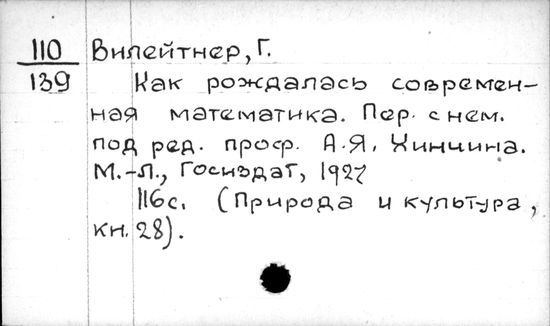 110 Вилейтнер, Г.
139 Как рождалась современ-
ная математика. Пер. с нем.
под ред. проф. А.Я. Хинчина.
М.-Л., Госиздат, 1927
116с. (Природа и культура,
кн. 28).